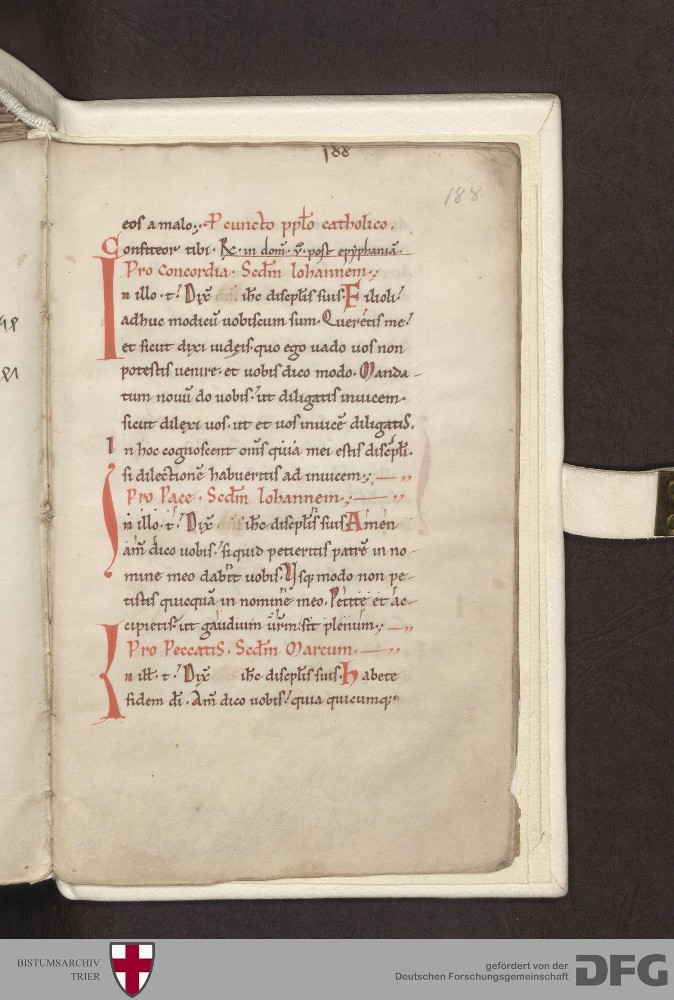 188
188
eos a malo. P cuncto pplo catholico.
Confiteor tibi. R. in dom. v. post epyphania.
Pro Concordia. Scdm Iohannem.
In illo. t. Dix ihc discplis suis. Filioli
adhuc modicu uobiscum sum. Queretis me.
et sicut dixi iudeis. quo ego uado uos non
potestis uenire. et uobis dico modo. Manda-
tum nouu do uobis. ut diligatis inuicem.
sicut dilexi uos. ut et uos inuice diligatis.
In hoc cognoscent oms quia mei estis discpli.
si dilectione habueritis ad inuicem.
Pro Pace. Scdm Iohannem.
In illo. t. Dix ihc discplis suis. Amen
am dico uobis. si quid petieritis patre in no-
mine meo dabit uobis. Vsq; modo non pe-
tistis quicqua in nomine meo. Petite et ac-
cipietis. ut gaudium urm sit plenum.
Pro Peccatis. Scdm Marcum.
In ill. t. Dix ihc discplis suis. Habete
fidem di. Am dico uobis. quia quicumq;
BISTUMSARCHIV
TRIER
gefördert von der
Deutschen Forschungsgemeinschaft
DFG